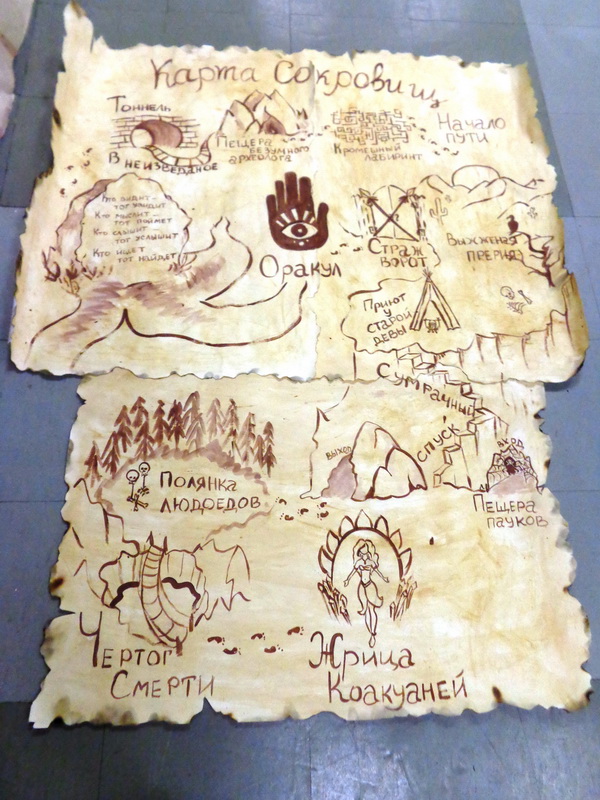 Карта Сокровищ
Тоннель
В неизведанное
Пещера
безумного
археолога
Кромешный
лабиринт
Начало
пути
Кто видит —
тот увидит
Кто мыслит —
тот поймет
Кто слышит —
тот услышит
Кто ищет —
тот найдет
Оракул
Страж
ворот
Выжженая
прерия
Приют
у
старой
девы
Сумрачный
спуск
Полянка
людоедов
выход
вход
Пещера
пауков
Чертог
Смерти
Жрица
Коакуаней